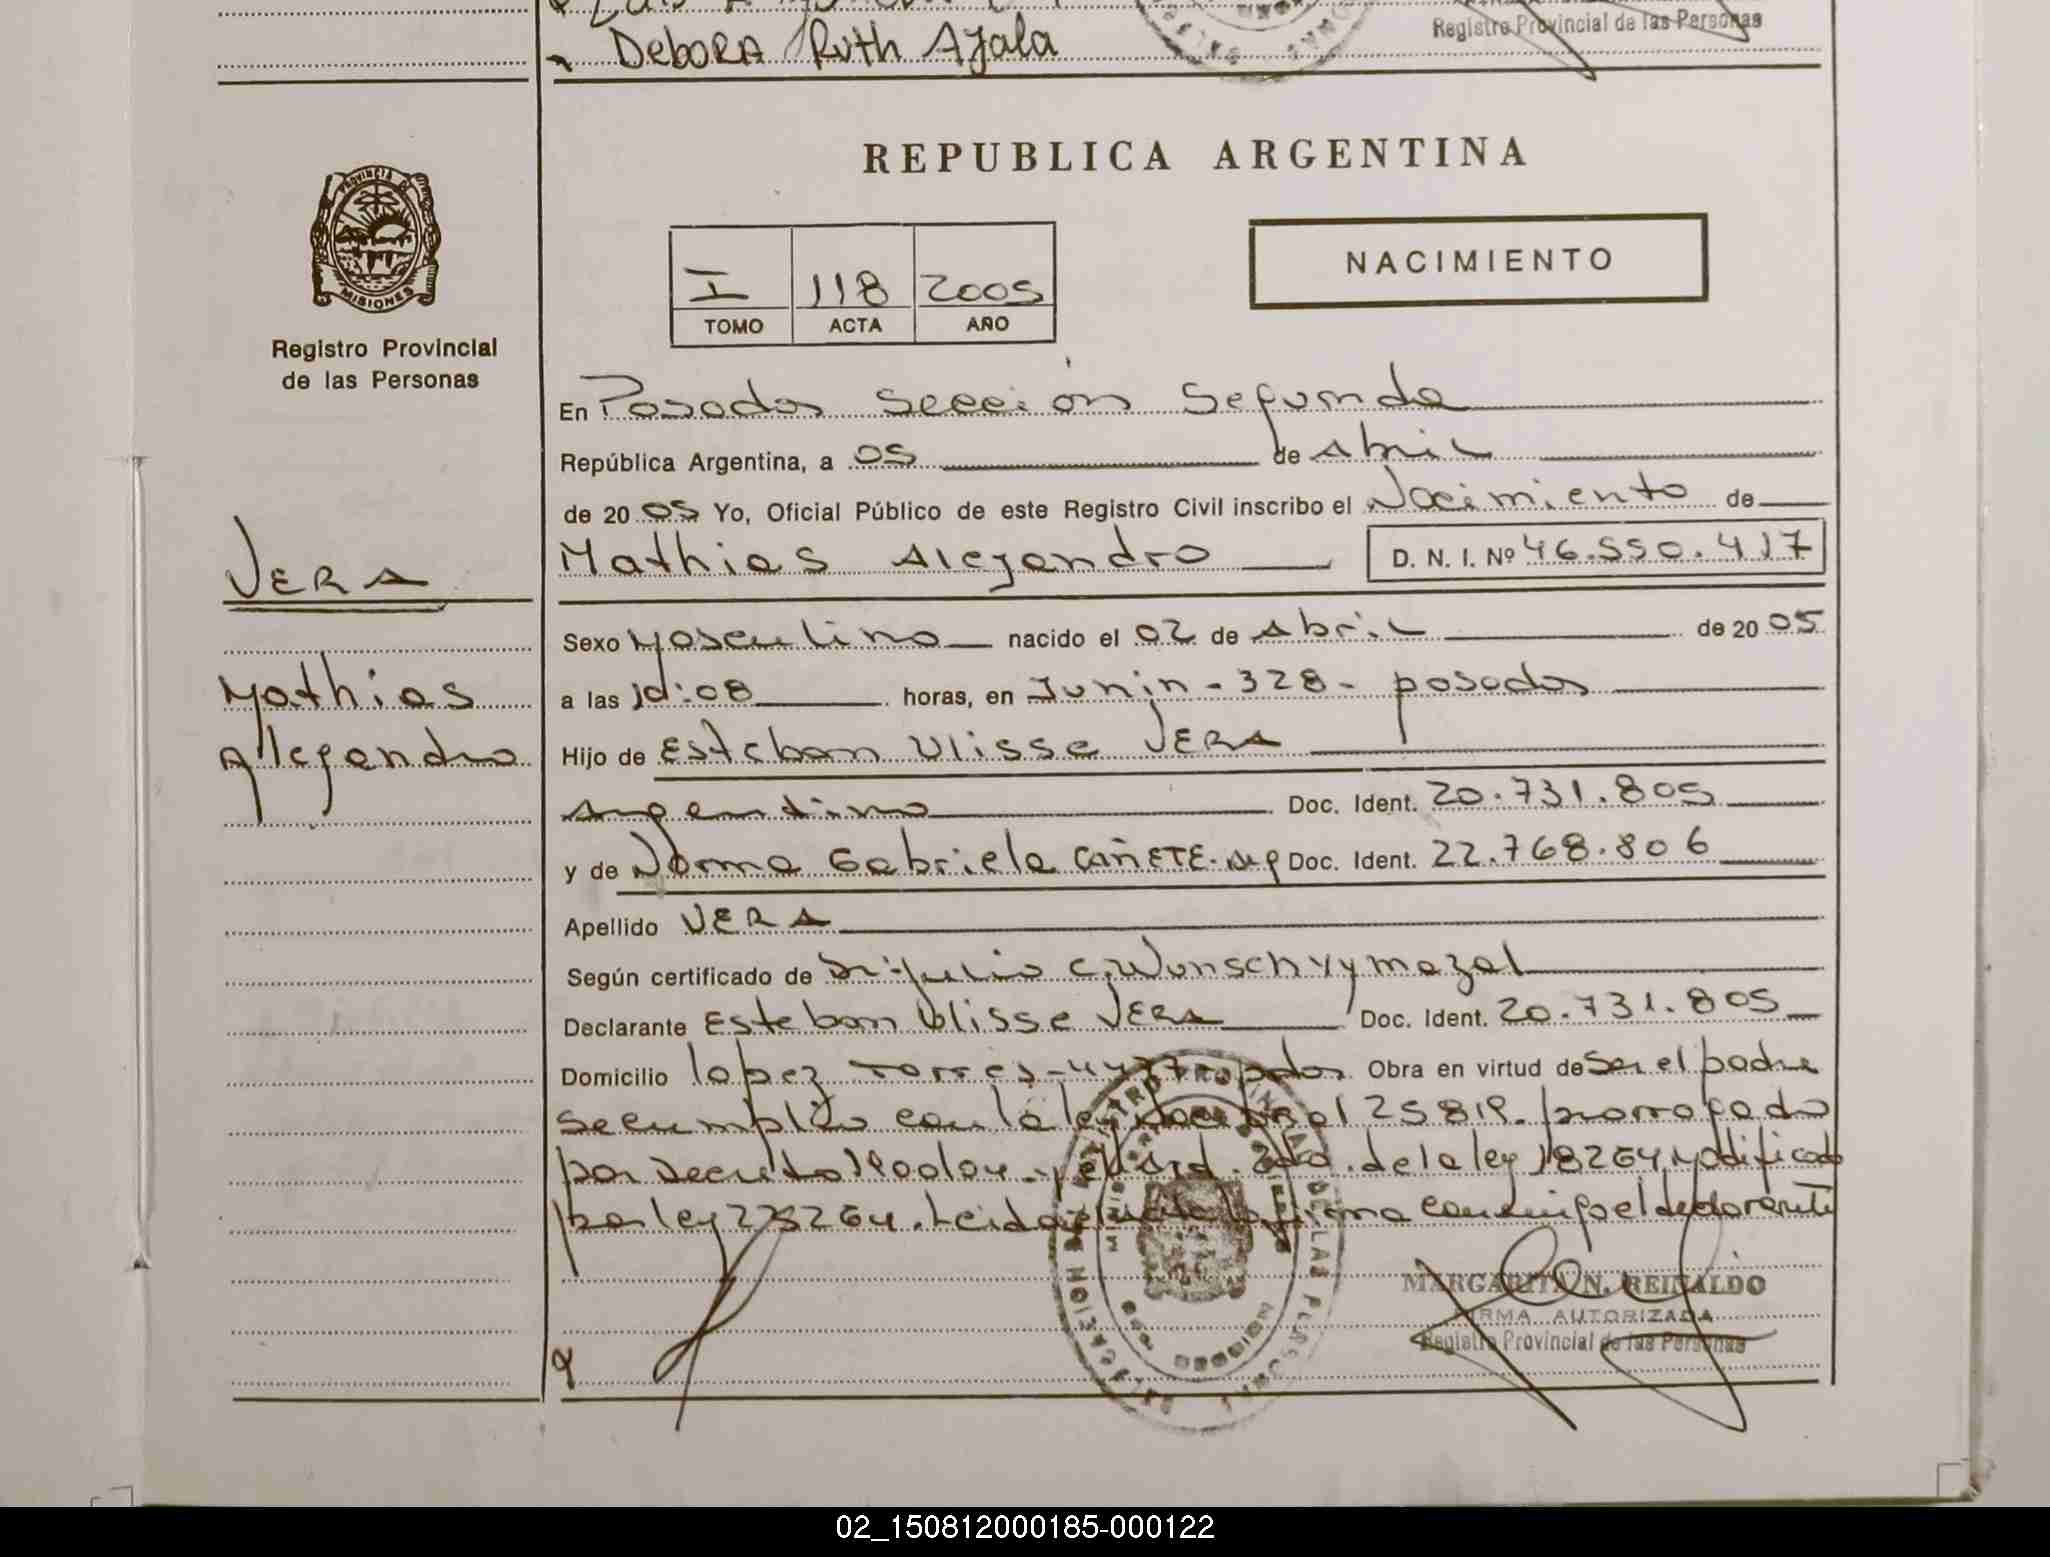 Debora Ruth Ayala
Registro Provincial de las Personas
REPUBLICA ARGENTINA
PROVINCIA DE
MISIONES
Registro Provincial
de las Personas
I 118 2005
TOMO ACTA AÑO
NACIMIENTO
En Posadas Sección Segunda
República Argentina, a 05 de Abril
de 2005 Yo, Oficial Público de este Registro Civil inscribo el Nacimiento de
Mathias Alejandro D. N. I. Nº 46.550.417
VERA
Mathias
Alejandro
Sexo Masculino nacido el 02 de Abril de 2005
a las 10:08 horas, en Junin - 328 - posadas
Hijo de Esteban Ulisse VERA
Argentino Doc. Ident. 20.731.805
y de Norma Gabriela CAÑETE. Doc. Ident. 22.768.806
Apellido VERA
Según certificado de Dr. Julio C. Wunsch
Declarante Esteban Ulisse VERA Doc. Ident. 20.731.805
Domicilio lopez Torres - 4477 - Obra en virtud de Ser el padre
Se cumplio con la ley Nacional 25819. prorrogado
por Decreto 1900/04 - y el Art. 2do. de la ley 18264 Modificado
por ley firma conmigo el declarante
MARGARITA N. REINALDO
FIRMA AUTORIZADA
Registro Provincial de las Personas
02_150812000185-000122